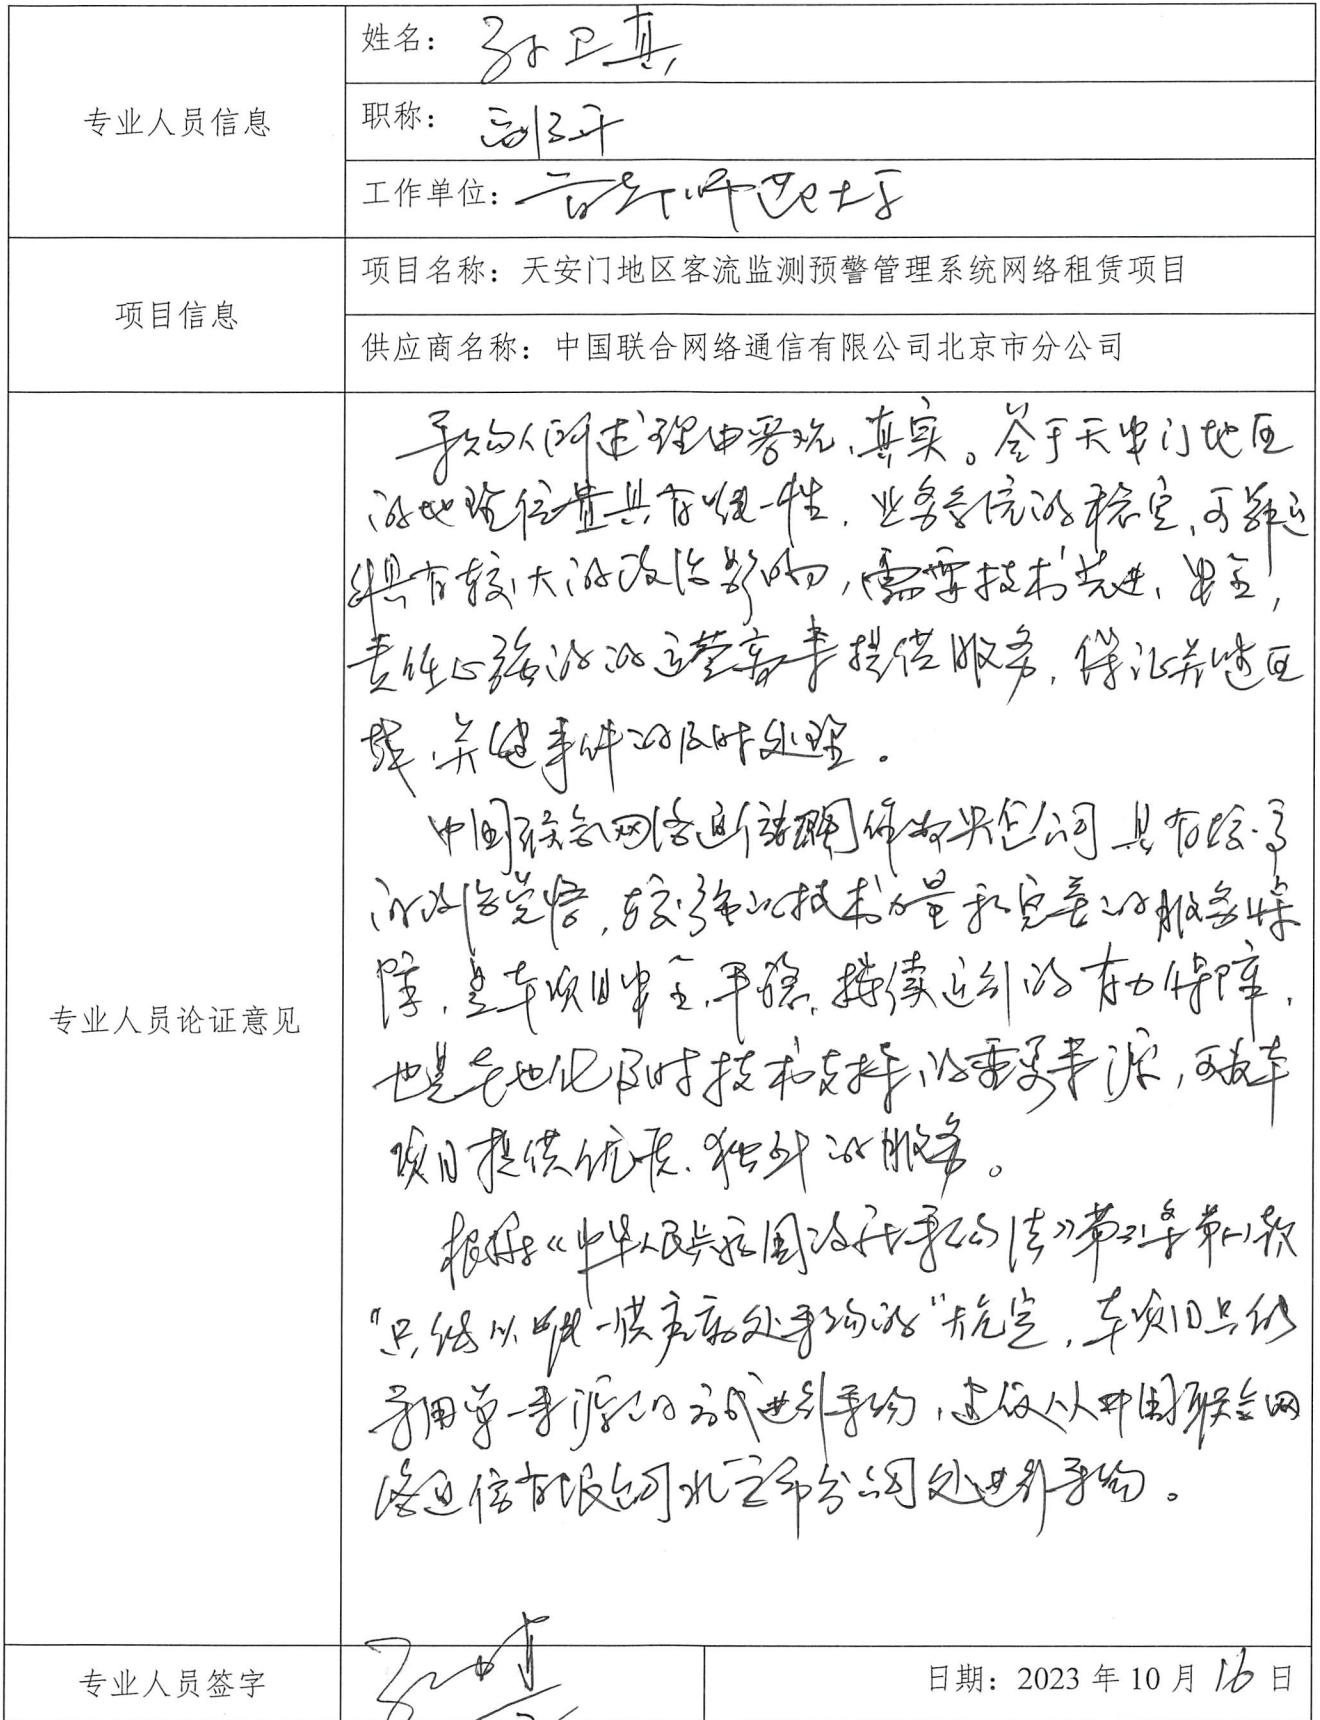 专业人员信息
姓名：孙卫真
职称：副教授
工作单位：首都师范大学
项目信息
项目名称：天安门地区客流监测预警管理系统网络租赁项目
供应商名称：中国联合网络通信有限公司北京市分公司
专业人员论证意见
采购人所述理由客观、真实。鉴于天安门地区
的地理位置具有唯一性，业务系统的稳定、可靠运
具有较大的政治影响，需要技术先进、安全，
责任心强的运营商来提供服务，保证关键区
域、关键事件的及时处理。
中国联合网络通信集团作为央企公司具有较高
的政治觉悟，较强的技术力量和完善的服务保
障，是本项目安全、平稳、持续运行的有力保障，
也是本地化及时技术支持的重要来源，可为本
项目提供优质、独到的服务。
根据《中华人民共和国政府采购法》第31条第(一)款
“只能从唯一供应商处采购的”规定，本项目只能
采用单一来源的方式进行采购，建议从中国联合网
络通信有限公司北京市分公司处进行采购。
专业人员签字
孙卫真
日期：2023 年 10 月 16 日